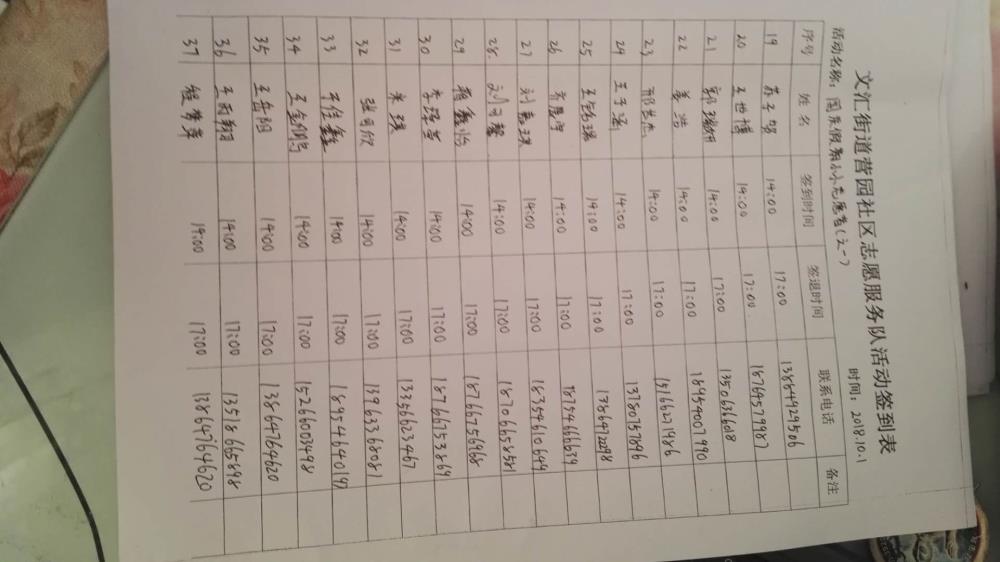 文汇街道营园社区志愿服务队活动签到表
活动名称：国庆假期小志愿者(之一) 时间：2018.10.1
序号 姓名 签到时间 签退时间 联系电话 备注
19 14:00 17:00 13864929506
20 王世博 14:00 17:00 18764579987
21 14:00 17:00 1350636608
22 姜浩 14:00 17:00 18494007990
23 14:00 17:00 15166271986
24 王子涵 14:00 17:00 13780767896
25 14:00 17:00
26 14:00 17:00 18754666639
27 刘嘉琪 14:00 17:00 18354610649
28. 14:00 17:00 18706658581
29 14:00 17:00 18766756968
30 14:00 17:00 18766753869
31 米琪 14:00 17:00 13356623467
32 张可欣 14:00 17:00 13963368081
33 14:00 17:00
34 14:00 17:00 15266003498
35 王岳阳 14:00 17:00 13864764620
36 王雨翔 14:00 17:00 13518665898
37 14:00 17:00 13864764620